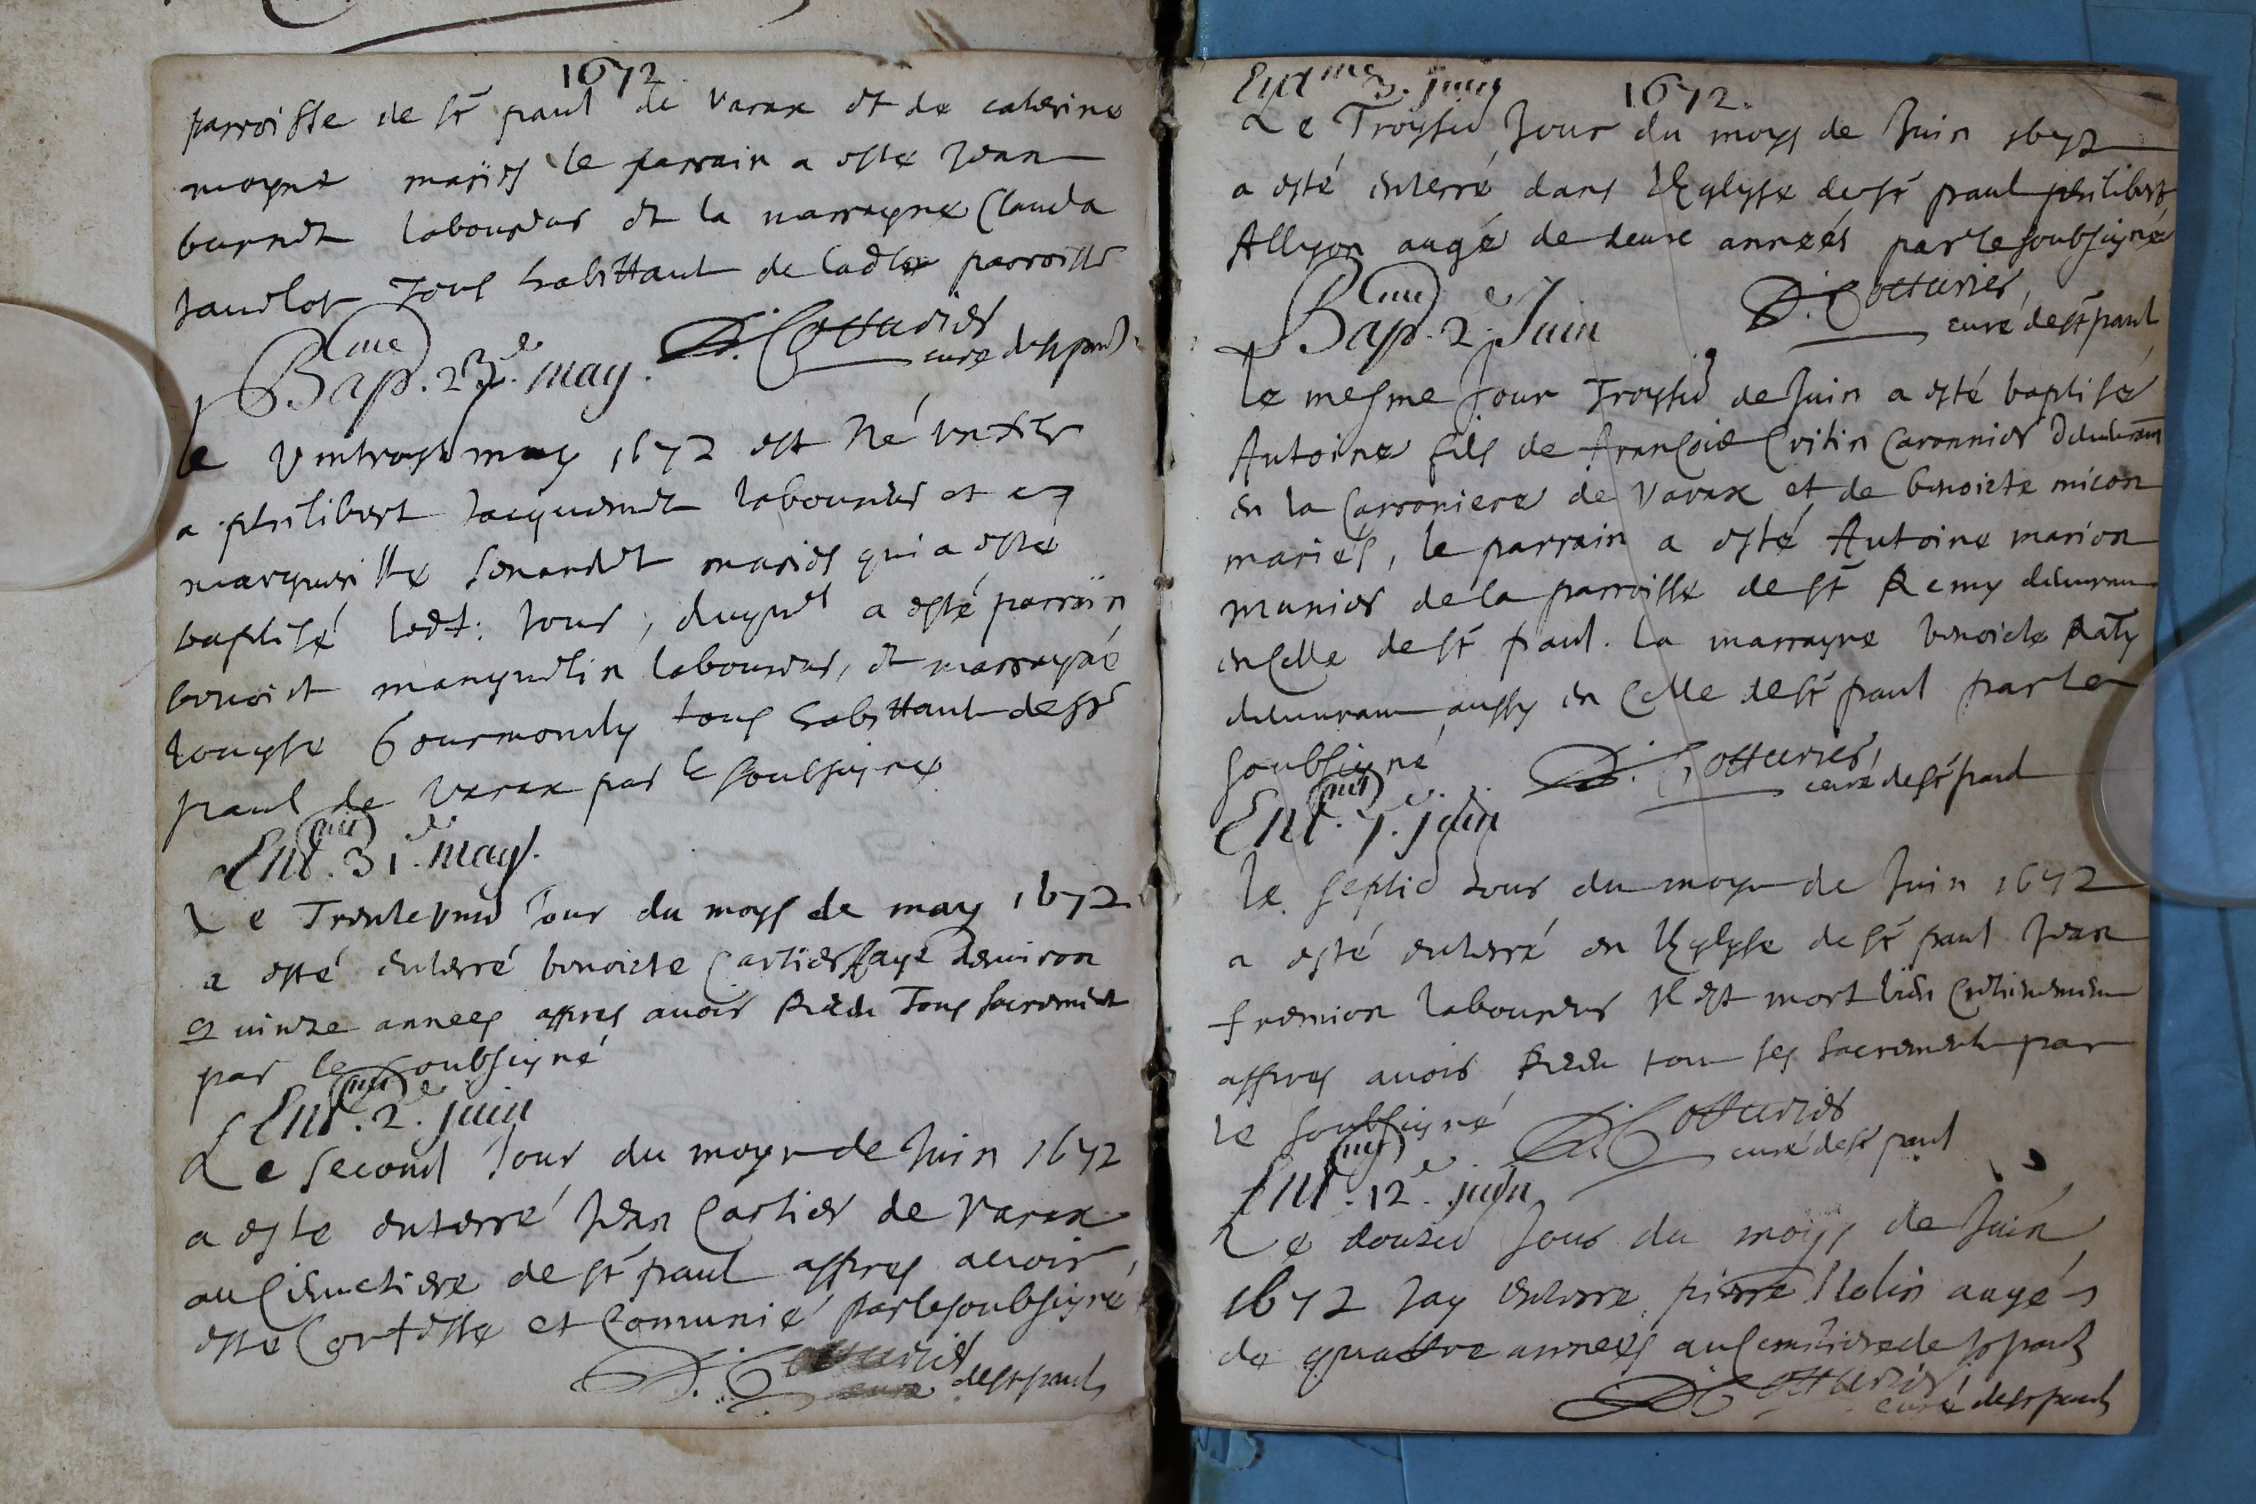 1672.
parroisse de st paul de varax et de caterine
moyne mariés le parrain a este Jean
burnet laboureur et la marrayne Clauda
Jauilot tous habittant de ladtte parroisse
D. Cotturier
curé de st paul
Bap.me 23.e may.
le vintroys may 1672 est Né un fils
a philibert Jacquemet laboureur et a
margueritte Senardet mariés qui a esté
baptisé ledt. Jour, duquel a esté parrain
benoist manguelin laboureur, et marrayne
louyse Gourmondy tous habittant de st
paul de varax par le soubsigné
Ent.mt 31.e may.
Le Trente unie Jour du moys de may 1672
a esté enterré benoicte Cartier aagé denviron
quinze annees appres avoir Receu Tous sacrement
par le soubsigné
Ent.mt 2.e juin
Le second Jour du moys de Juin 1672
a este enterré Jean Cartier de varax
au Cimetiere de st paul appres avoir
esté Confesse et Comunié par le soubsigné
D. Cotturier
curé de st paul
Ent.me 3. juin
1672.
Le Troysie Jour du moys de Juin 1672
a esté enterré dans l'Eglyse de st paul philibert
Allyon augé de deux annéés par le soubsigné
D. Cotturier
curé de st paul
Bap.me 2.e Juin
le mesme Jour Troysie de Juin a esté baptisé
Antoine fils de françois Critin Caronnier demeurant
en la Carroniere de varax et de benoicte micon
mariés, le parrain a esté Antoine marion
munier de la parroisse de st Remy demeurant
en Celle de st paul. la marrayne benoicte Raty
demeurant aussy en Celle de st paul par le
soubsigné
D. Cotturier
curé de st paul
Ent.mt 7.e juin
le septie Jour du moys de Juin 1672
a esté enterré en l'Eglyse de st paul Jean
fremion laboureur Il est mort bien Cretiennement
appres avoir Receu tous ses sacrements par
le soubsigné
D. Cotturier
curé de st paul
Ent.mt 12.e juin
Le douzie Jour du moys de Juin
1672 Jay enterre pierre Nolin augé
de quattre années au Cemitiere de st paul
D. Cotturier
curé de st paul